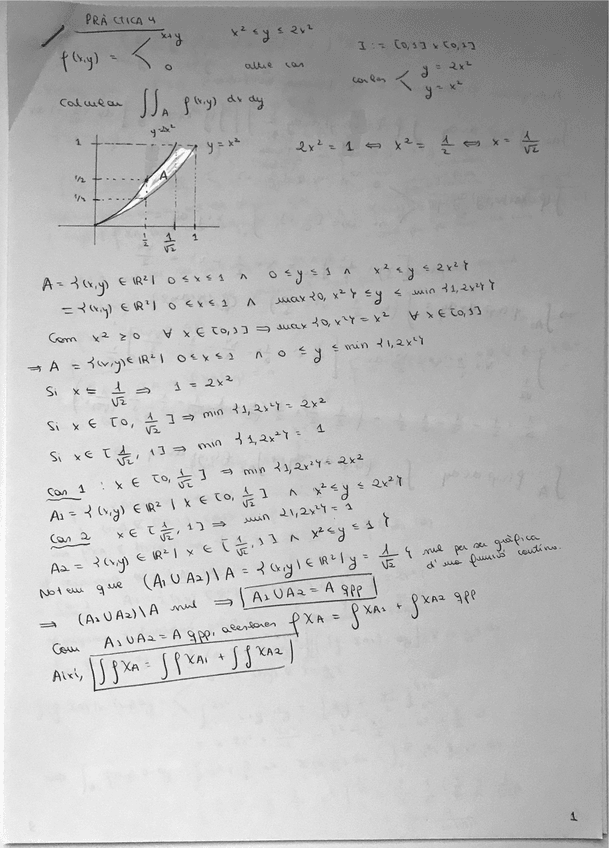 PRÀCTICA 4
f(x,y) = < x+y   x² ≤ y ≤ 2x²
0   altre cas
I := [0,1] x [0,1]
corbes < y = 2x²
y = x²
Calcular ∬_A f(x,y) dx dy
y=2x²
1   y = x²
A
1/2
1/4
1/2   1/√2   1
2x² = 1 ⇔ x² = 1/2 ⇔ x = 1/√2
A = {(x,y) ∈ ℝ² | 0 ≤ x ≤ 1 ∧ 0 ≤ y ≤ 1 ∧ x² ≤ y ≤ 2x²}
= {(x,y) ∈ ℝ² | 0 ≤ x ≤ 1 ∧ max{0, x²} ≤ y ≤ min{1, 2x²}}
Com x² ≥ 0 ∀ x ∈ [0,1] ⇒ max{0, x²} = x² ∀ x ∈ [0,1]
⇒ A = {(x,y) ∈ ℝ² | 0 ≤ x ≤ 1 ∧ 0 ≤ y ≤ min{1, 2x²}
Si x = 1/√2 ⇒ 1 = 2x²
Si x ∈ [0, 1/√2] ⇒ min{1, 2x²} = 2x²
Si x ∈ [1/√2, 1] ⇒ min{1, 2x²} = 1
Cas 1 : x ∈ [0, 1/√2] ⇒ min{1, 2x²} = 2x²
A1 = {(x,y) ∈ ℝ² | x ∈ [0, 1/√2] ∧ x² ≤ y ≤ 2x²}
Cas 2 x ∈ [1/√2, 1] ⇒ min{1, 2x²} = 1
A2 = {(x,y) ∈ ℝ² | x ∈ [1/√2, 1] ∧ x² ≤ y ≤ 1}
Notem que (A1 ∪ A2) \ A = {(x,y) ∈ ℝ² | y = 1/√2} nul per ser gràfica
d'una funció contínua.
⇒ (A1 ∪ A2) \ A nul ⇒ A1 ∪ A2 = A gpp
Com A1 ∪ A2 = A gpp, aleshores f χA = f χA1 + f χA2 gpp
Així, ∬ f χA = ∫ f χA1 + ∬ f χA2
1